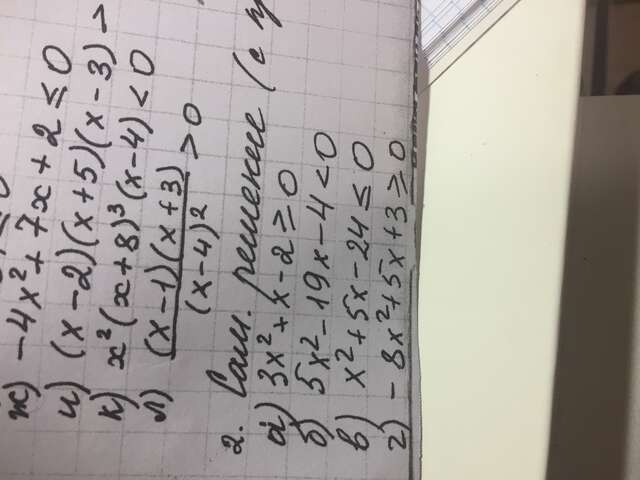 ж) -4x² + 7x + 2 ≤ 0
и) (x-2)(x+5)(x-3)
к) x²(x+8)³(x-4) < 0
л) (x-1)(x+3)/(x-4)² > 0
2. Сам. решение (с
а) 3x² + x - 2 ≥ 0
б) 5x² - 19x - 4 < 0
в) x² + 5x - 24 ≤ 0
г) -8x² + 5x + 3 ≥ 0